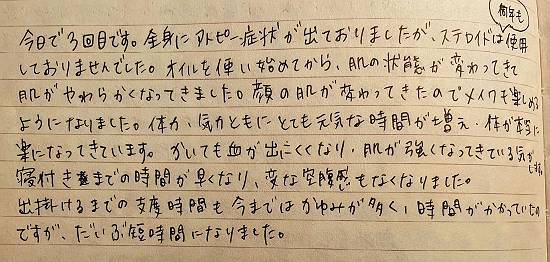 何年も
今日で3回目です。全身にアトピー症状が出ておりましたが、ステロイドは使用
しておりませんでした。オイルを使い始めてから、肌の状態が変わってきて
肌がやわらかくなってきました。顔の肌が変わってきたのでメイクも楽しめる
ようになりました。体力、気力ともにとても元気な時間が増え、体が本当に
楽になってきています。かいても血が出にくくなり、肌が強くなってきている気がします。
寝付きまでの時間が早くなり、変な空腹感もなくなりました。
出掛けるまでの支度時間も今まではかゆみが多く、時間がかかっていたの
ですが、だいぶ短時間になりました。